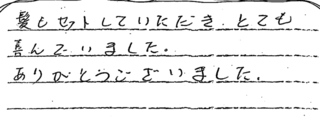 髪もセットしていただき、とても
喜んでいました.
ありがとうございました.